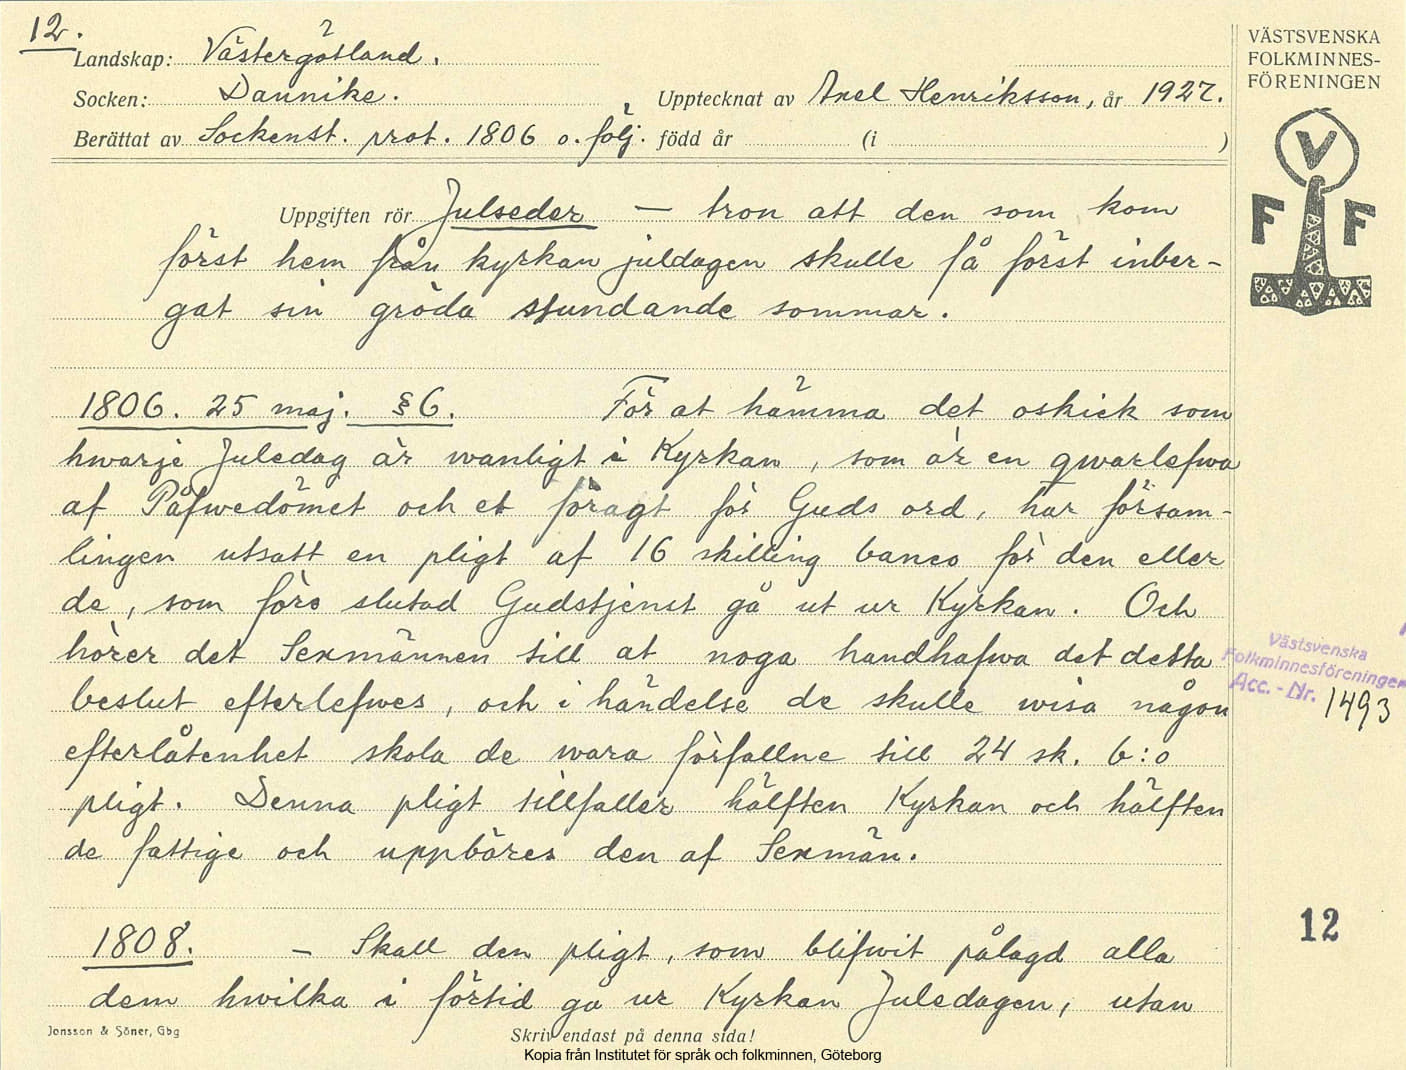 12.
Landskap: Västergötland.
Socken: Dannike. Upptecknat av Axel Henriksson, år 1927.
Berättat av Sockenst. prot. 1806 o. följ. född år (i )
Uppgiften rör Julseder — tron att den som kom
först hem från kyrkan juldagen skulle få först inber-
gat sin gröda stundande sommar.
1806. 25 maj. § 6. För at hämma det oskick som
hwarje Juledag är wanligt i Kyrkan, som är en qwarlefwa
af Påfwedömet och et föragt för Guds ord, har försam-
lingen utsatt en pligt af 16 skilling banco för den eller
de, som före slutad Gudstjenst gå ut ur Kyrkan. Och
hörer det Sexmännen till at noga handhafwa det detta
beslut efterlefwes, och i händelse de skulle wisa någon
efterlåtenhet skola de wara förfallne till 24 sk. b:o
pligt. Denna pligt tillfaller hälften Kyrkan och hälften
de fattige och uppbäres den af Sexmän.
1808. — Skall den pligt, som blifwit pålagd alla
dem hwilka i förtid gå ur Kyrkan Juledagen, utan
Jonsson & Söner, Gbg
Skriv endast på denna sida!
Kopia från Institutet för språk och folkminnen, Göteborg
VÄSTSVENSKA
FOLKMINNES-
FÖRENINGEN
V
F F
Västsvenska
Folkminnesföreningen
Acc.-Nr. 1493
12